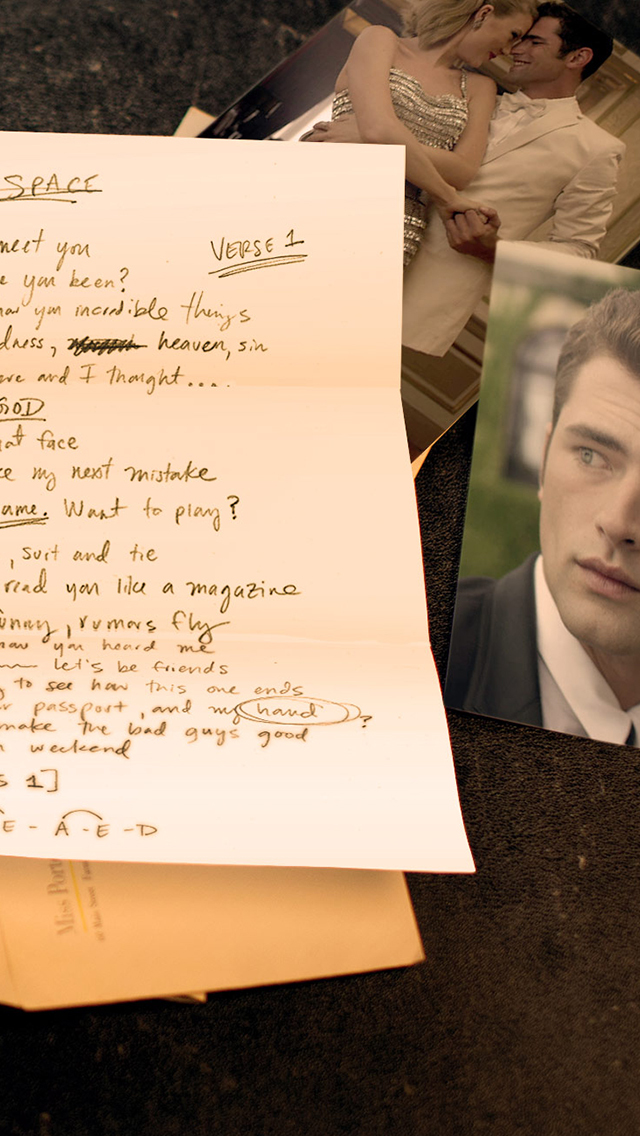 SPACE
VERSE 1
meet you
e you been?
ow you incredible things
dness, heaven, sin
ere and I thought....
GOD
at face
ke my next mistake
ame. Want to play?
, suit and tie
read you like a magazine
unny, rumors fly
now you heard me
let's be friends
g to see how this one ends
r passport, and my hand?
make the bad guys good
weekend
s 1]
E - A - E - D
Miss Por
Main Street